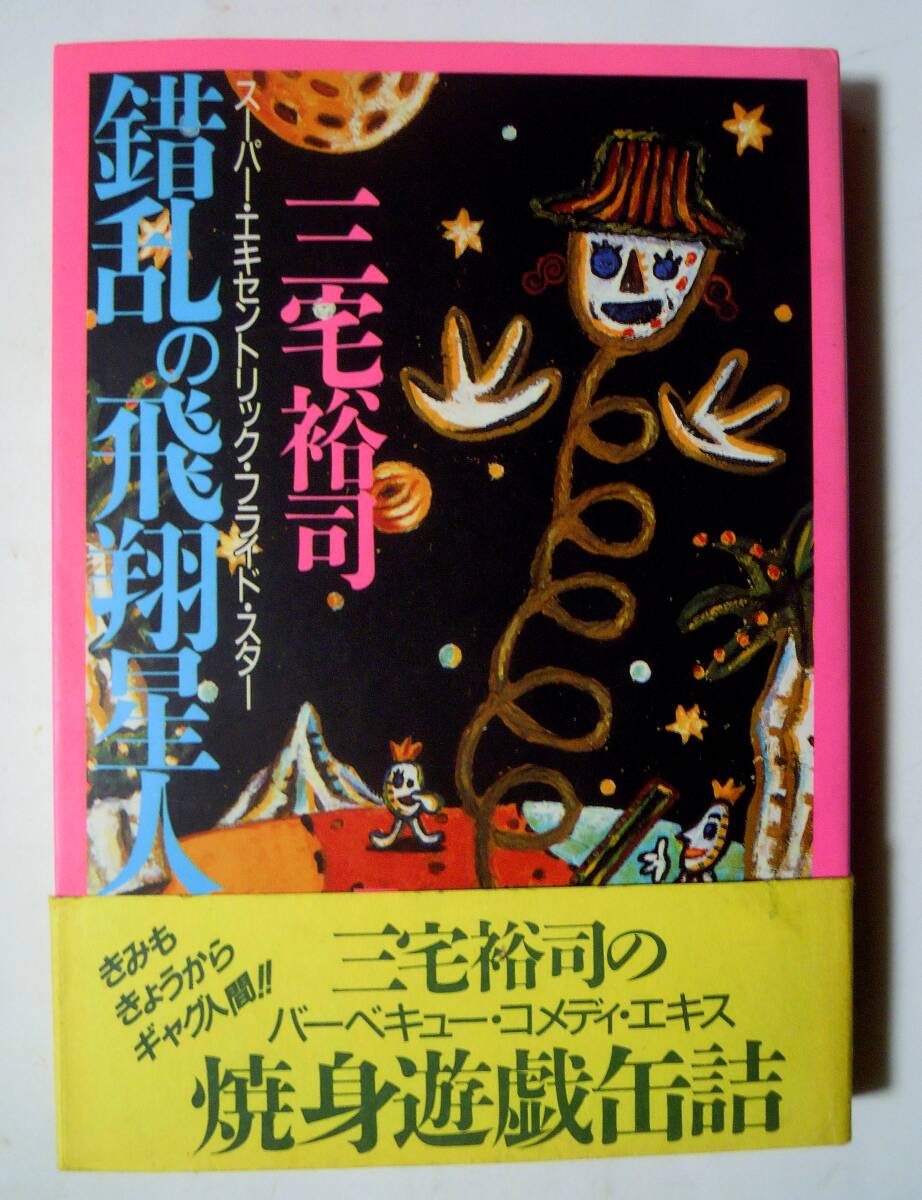 三宅裕司
スーパー・エキセントリック・フライド・スター
錯乱の飛翔星人
きみも
きょうから
ギャグ人間!!
三宅裕司の
バーベキュー・コメディ・エキス
焼身遊戯缶詰